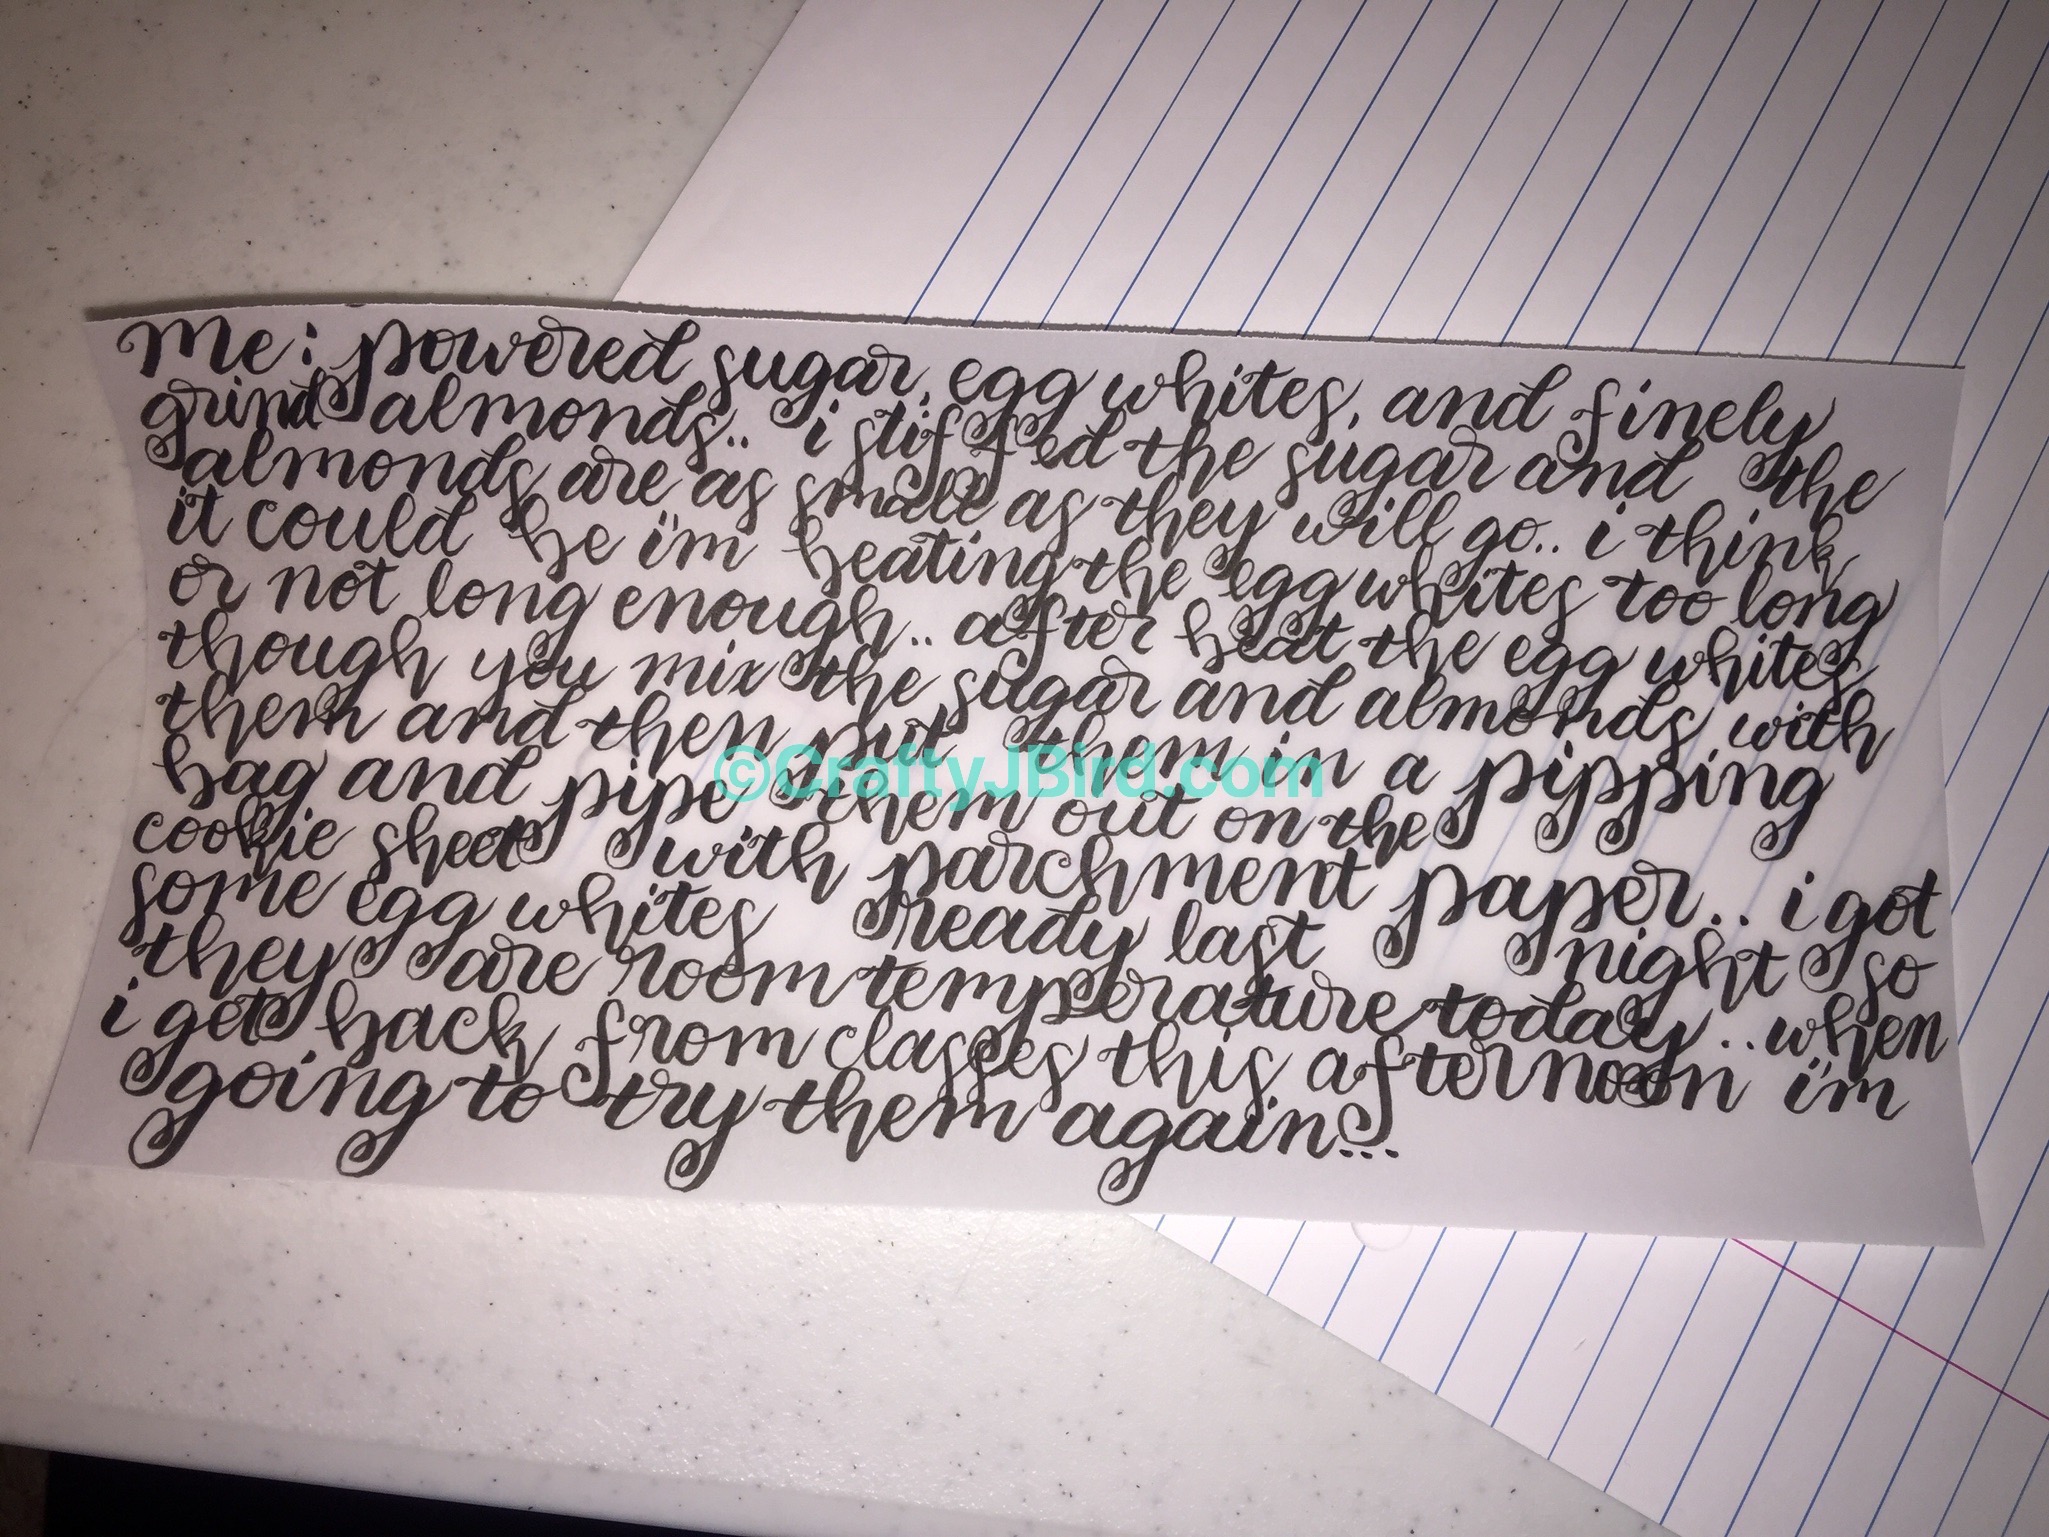 me: powered sugar, egg whites, and finely
grind almonds.. i stiffed the sugar and the
almonds are as small as they will go.. i think
it could be i'm beating the egg whites too long
or not long enough.. after beat the egg whites
though you mix the sugar and almonds with
them and then put them in a pipping
bag and pipe them out on the
cookie sheet with parchment paper.. i got
some egg whites ready last night so
they are room temperature today.. when
i get back from classes this afternoon i'm
going to try them again...
©CraftyJBird.com